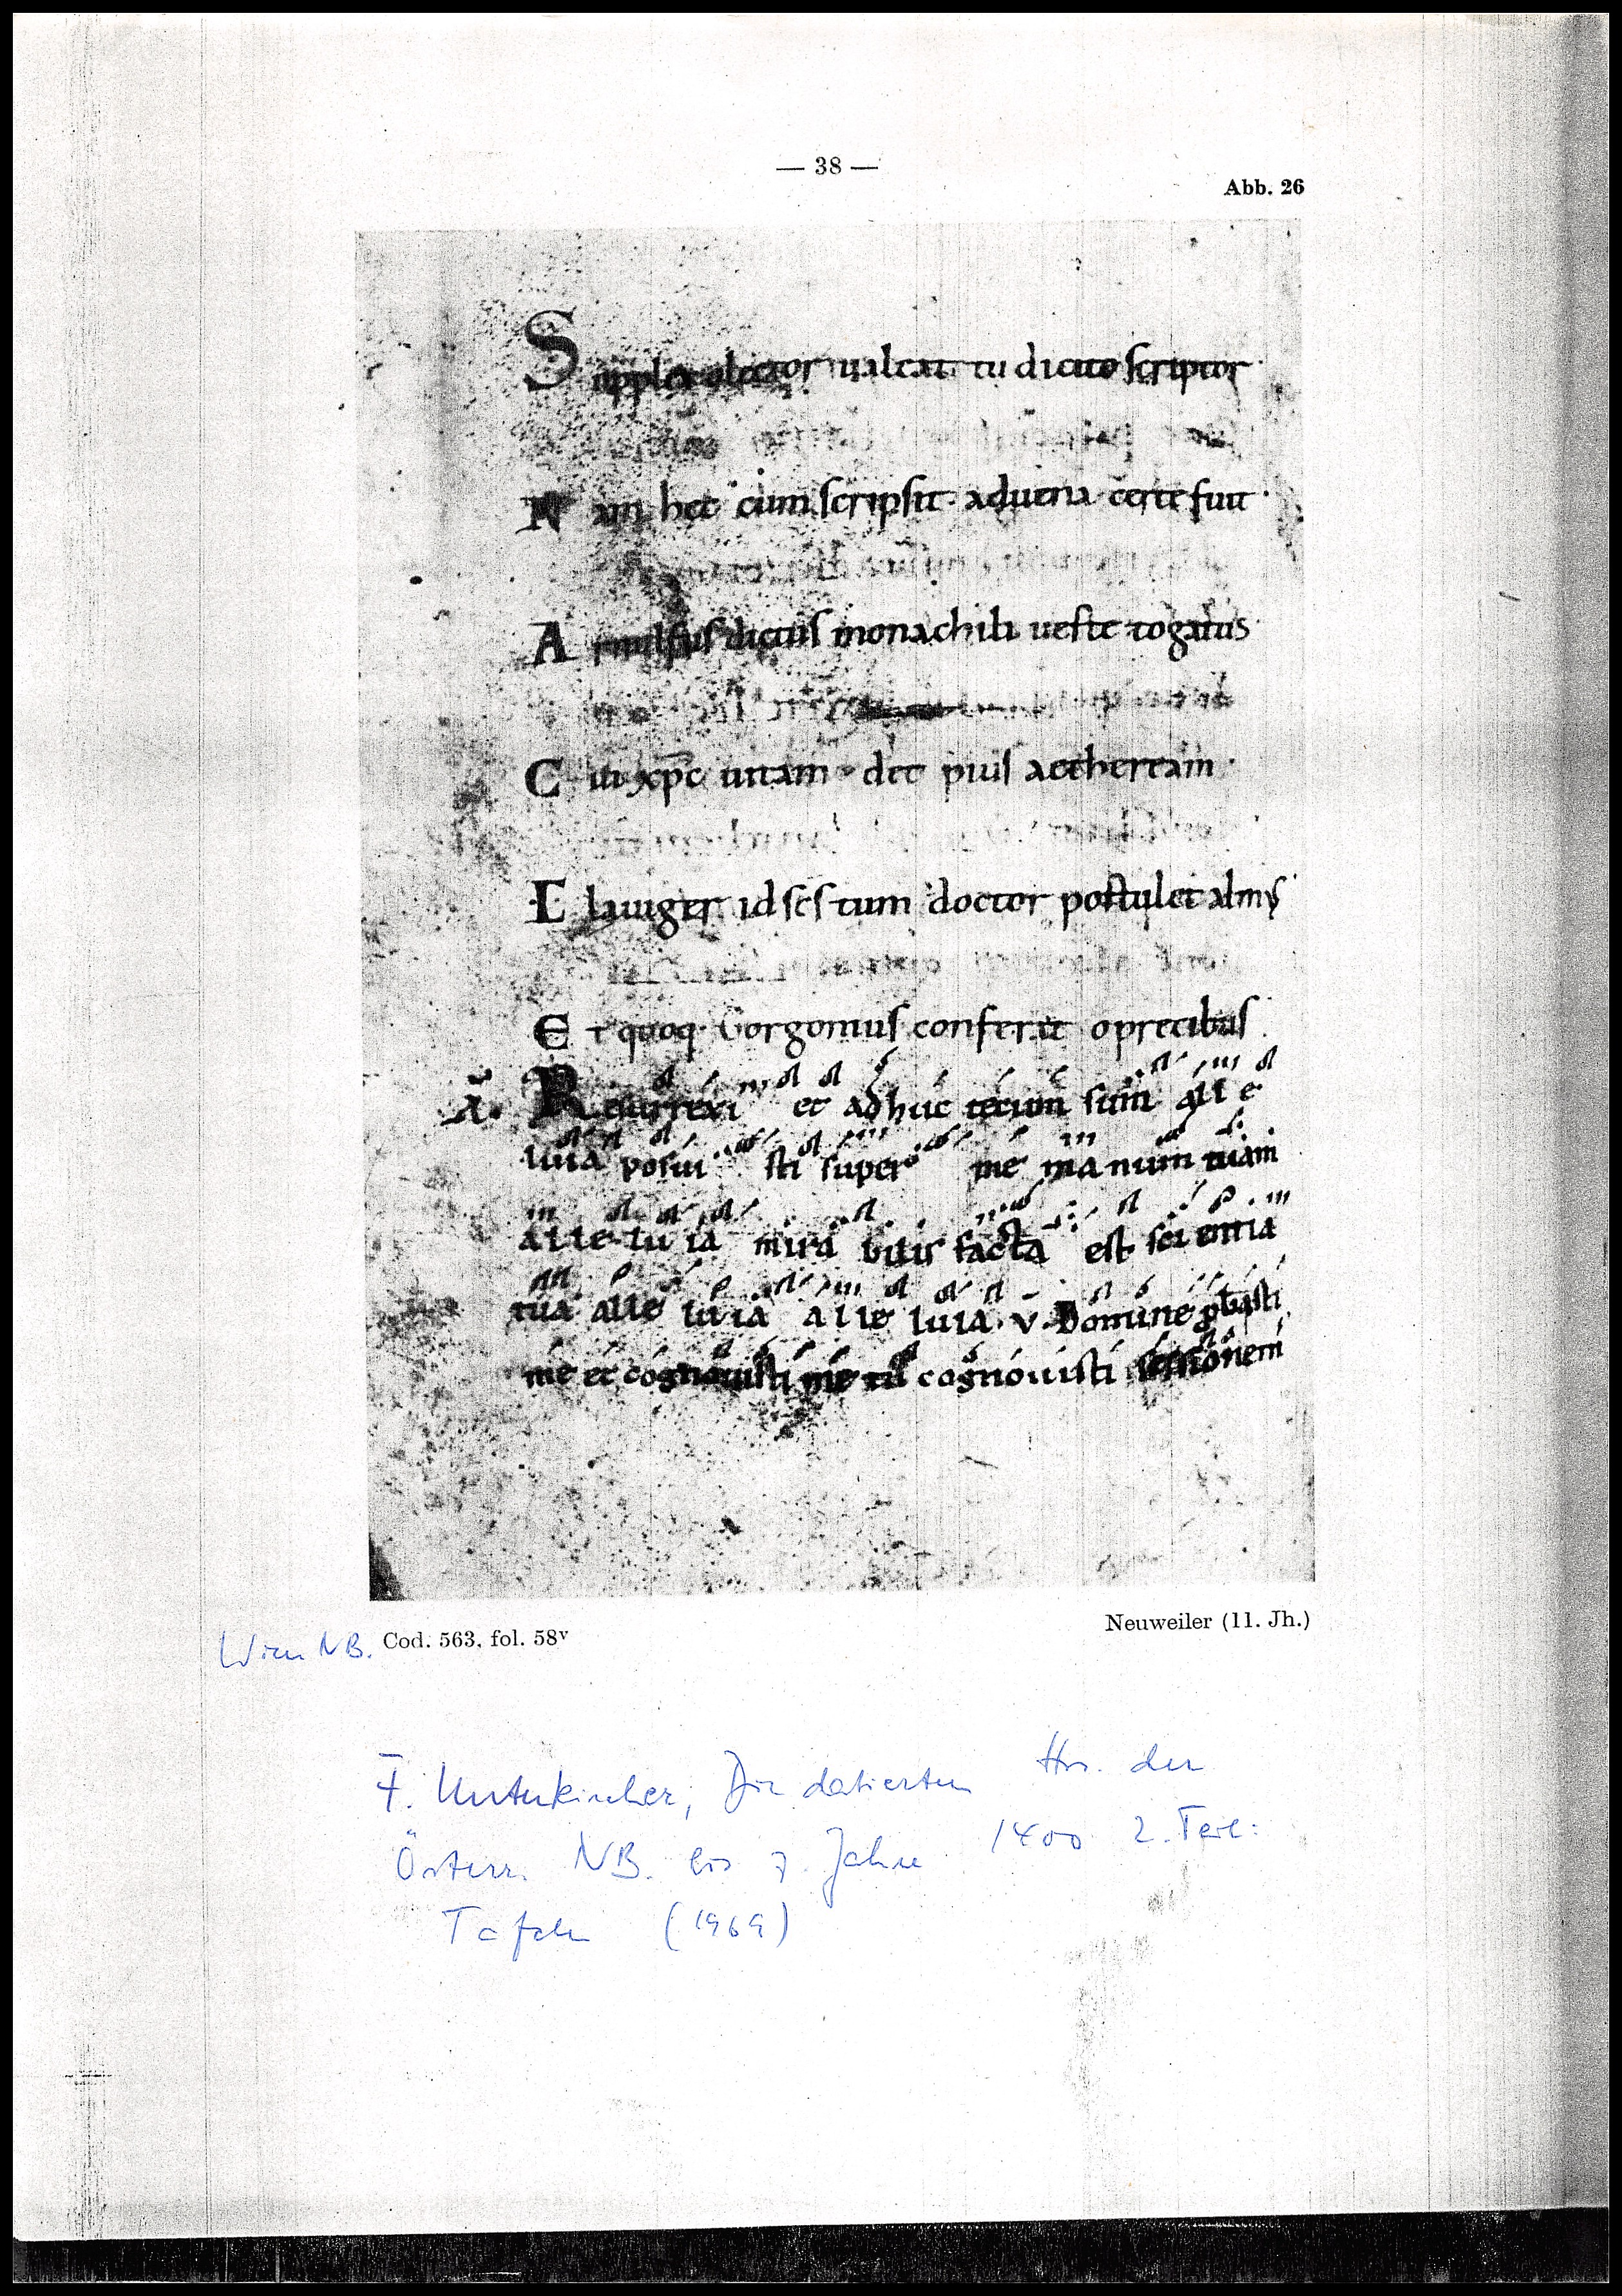 — 38 —
Abb. 26
Supplex o lector ualeat tu dicito scriptor
Nam hec cum scripsit aduena certe fuit
Arnulfus dictus monachili ueste togatus
Cui xpc uitam det pius aetheream
Clauiger id scs tum doctor postulet almus
Et quoq. Gorgonius conferat o precibus
Resurrexi et adhuc tecum sum alle
luia posui sti super me manum tuam
alle lu ia mira bilis facta est sci entia
tua alle luia alle luia. v. Domine pbasti
me et cognouisti me tu cognouisti sessionem
Wien NB. Cod. 563, fol. 58v
Neuweiler (11. Jh.)
F. Unterkircher, Die datierten Hss. der
Österr. NB. bis z. Jahre 1400 2. Teil:
Tafeln (1969)